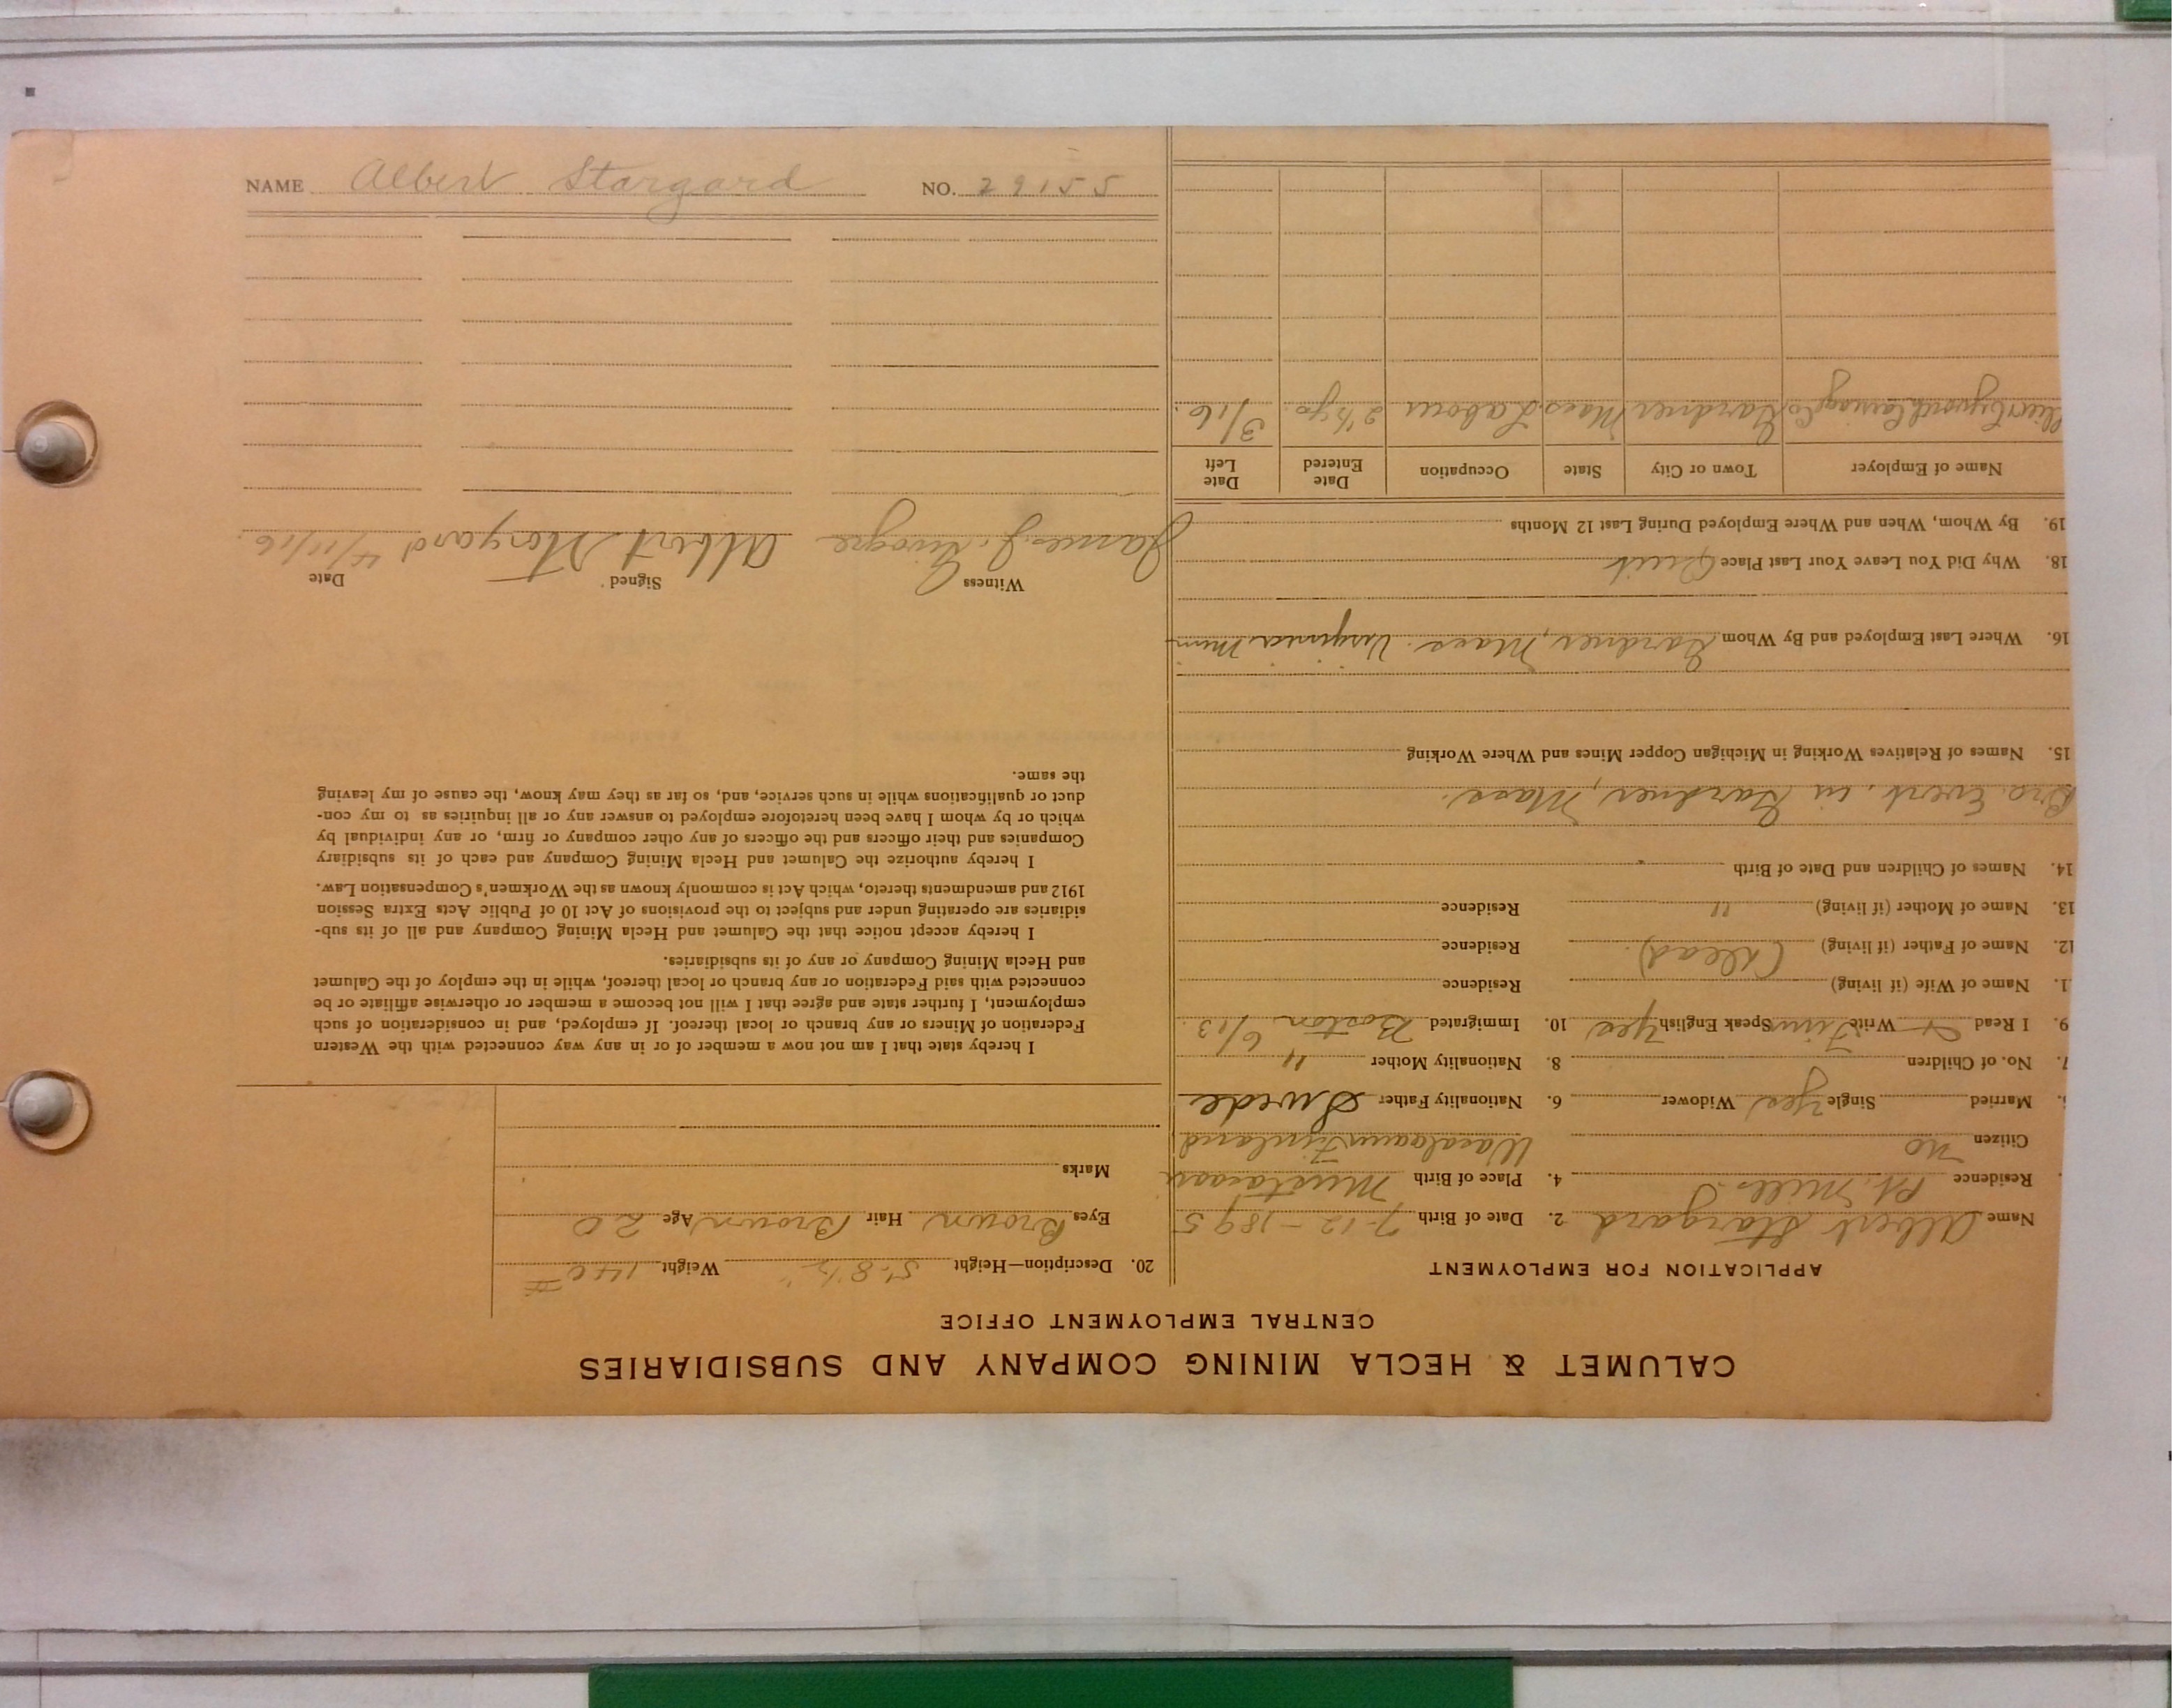 CALUMET & HECLA MINING COMPANY AND SUBSIDIARIES
CENTRAL EMPLOYMENT OFFICE
APPLICATION FOR EMPLOYMENT
Name Albert Stargard 2. Date of Birth 7-12-1895
Residence Pt. Mills 4. Place of Birth
Citizen no Finland
Married Single Yes Widower 6. Nationality Father Swede
7. No. of Children 8. Nationality Mother "
9. I Read Write Finn Speak English Yes 10. Immigrated Boston 6/13
1. Name of Wife (if living) Residence
12. Name of Father (if living) (dead) Residence
13. Name of Mother (if living) " Residence
14. Names of Children and Date of Birth
Bro. Evert. in Gardner, Mass.
15. Names of Relatives Working in Michigan Copper Mines and Where Working
16. Where Last Employed and By Whom Gardner, Mass. Virginia Minn
18. Why Did You Leave Your Last Place Quit
19. By Whom, When and Where Employed During Last 12 Months
Name of Employer Town or City State Occupation Date Entered Date Left
Gardner Mass. Labour 2½ yo. 3/16.
20. Description—Height 5'-8½" Weight 140 #
Eyes Brown Hair Brown Age 20
Marks
I hereby state that I am not now a member of or in any way connected with the Western
Federation of Miners or any branch or local thereof. If employed, and in consideration of such
employment, I further state and agree that I will not become a member or otherwise affiliate or be
connected with said Federation or any branch or local thereof, while in the employ of the Calumet
and Hecla Mining Company or any of its subsidiaries.
I hereby accept notice that the Calumet and Hecla Mining Company and all of its sub-
sidiaries are operating under and subject to the provisions of Act 10 of Public Acts Extra Session
1912 and amendments thereto, which Act is commonly known as the Workmen's Compensation Law.
I hereby authorize the Calumet and Hecla Mining Company and each of its subsidiary
Companies and their officers and the officers of any other company or firm, or any individual by
which or by whom I have been heretofore employed to answer any or all inquiries as to my con-
duct or qualifications while in such service, and, so far as they may know, the cause of my leaving
the same.
Witness Signed Date
James J. Albert Storgard 4/11/16.
NAME Albert Stargard NO. 29155